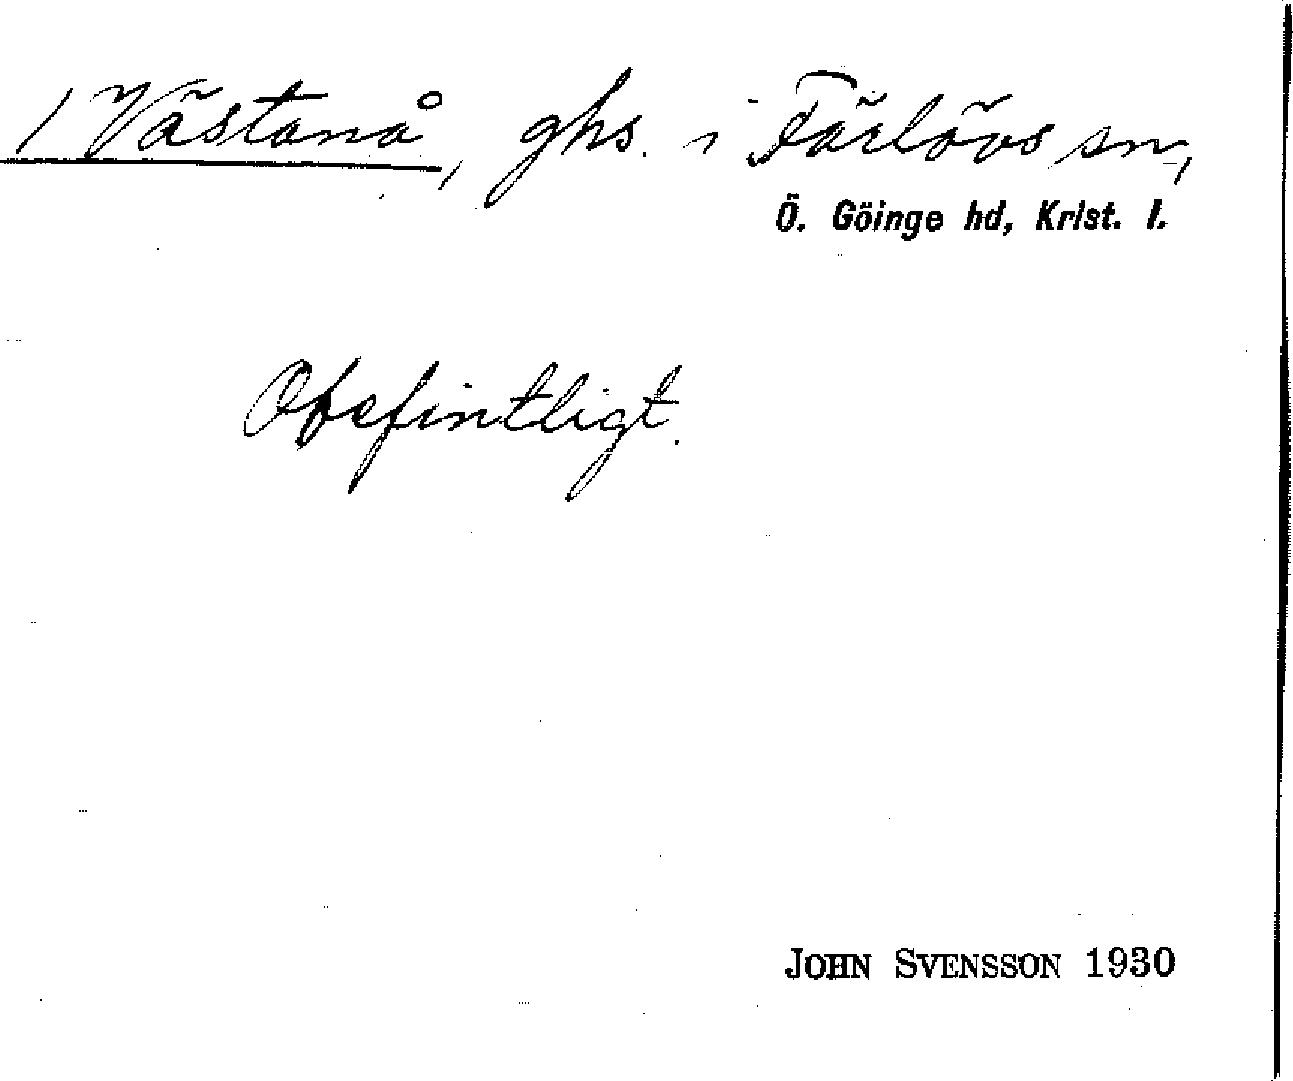 / Västanå, ghs. i Färlövs sn,
Ö. Göinge hd, Krist. l.
Obefintligt.
JOHN SVENSSON 1930